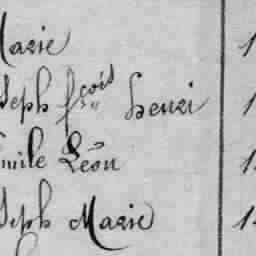 Marie 1
Joseph fçois Henri 1
Emile Léon 1
Joseph Marie 1